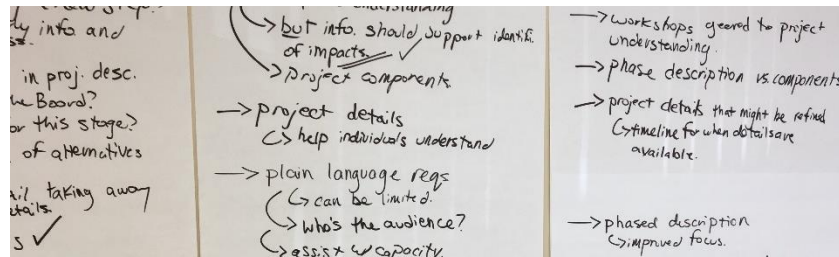 info and
in proj. desc.
Board?
this stage?
of alternatives
taking away
s ✓
→ but info. should support identifi.
of impacts. ✓
→ Project components
→ project details
↳ help individuals understand
→ plain language reqs
↳ can be limited.
↳ who's the audience?
↳ assist w/ capacity.
→ workshops geered to project
understanding.
→ phase description vs. components
→ project details that might be refined
↳ timeline for when details are
available.
→ phased discription
↳ improved focus.